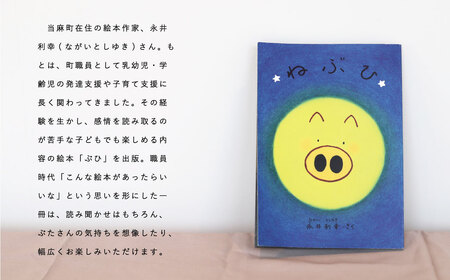 当麻町在住の絵本作家、永井
利幸（ながいとしゆき）さん。も
とは、町職員として乳幼児・学
齢児の発達支援や子育て支援に
長く関わってきました。その経
験を生かし、感情を読み取るの
が苦手な子どもでも楽しめる内
容の絵本「ぶひ」を出版。職員
時代「こんな絵本があったらい
いな」という思いを形にした一
冊は、読み聞かせはもちろん、
ぶたさんの気持ちを想像したり、
幅広くお楽しみいただけます。
ねぶひ
永井利幸・さく